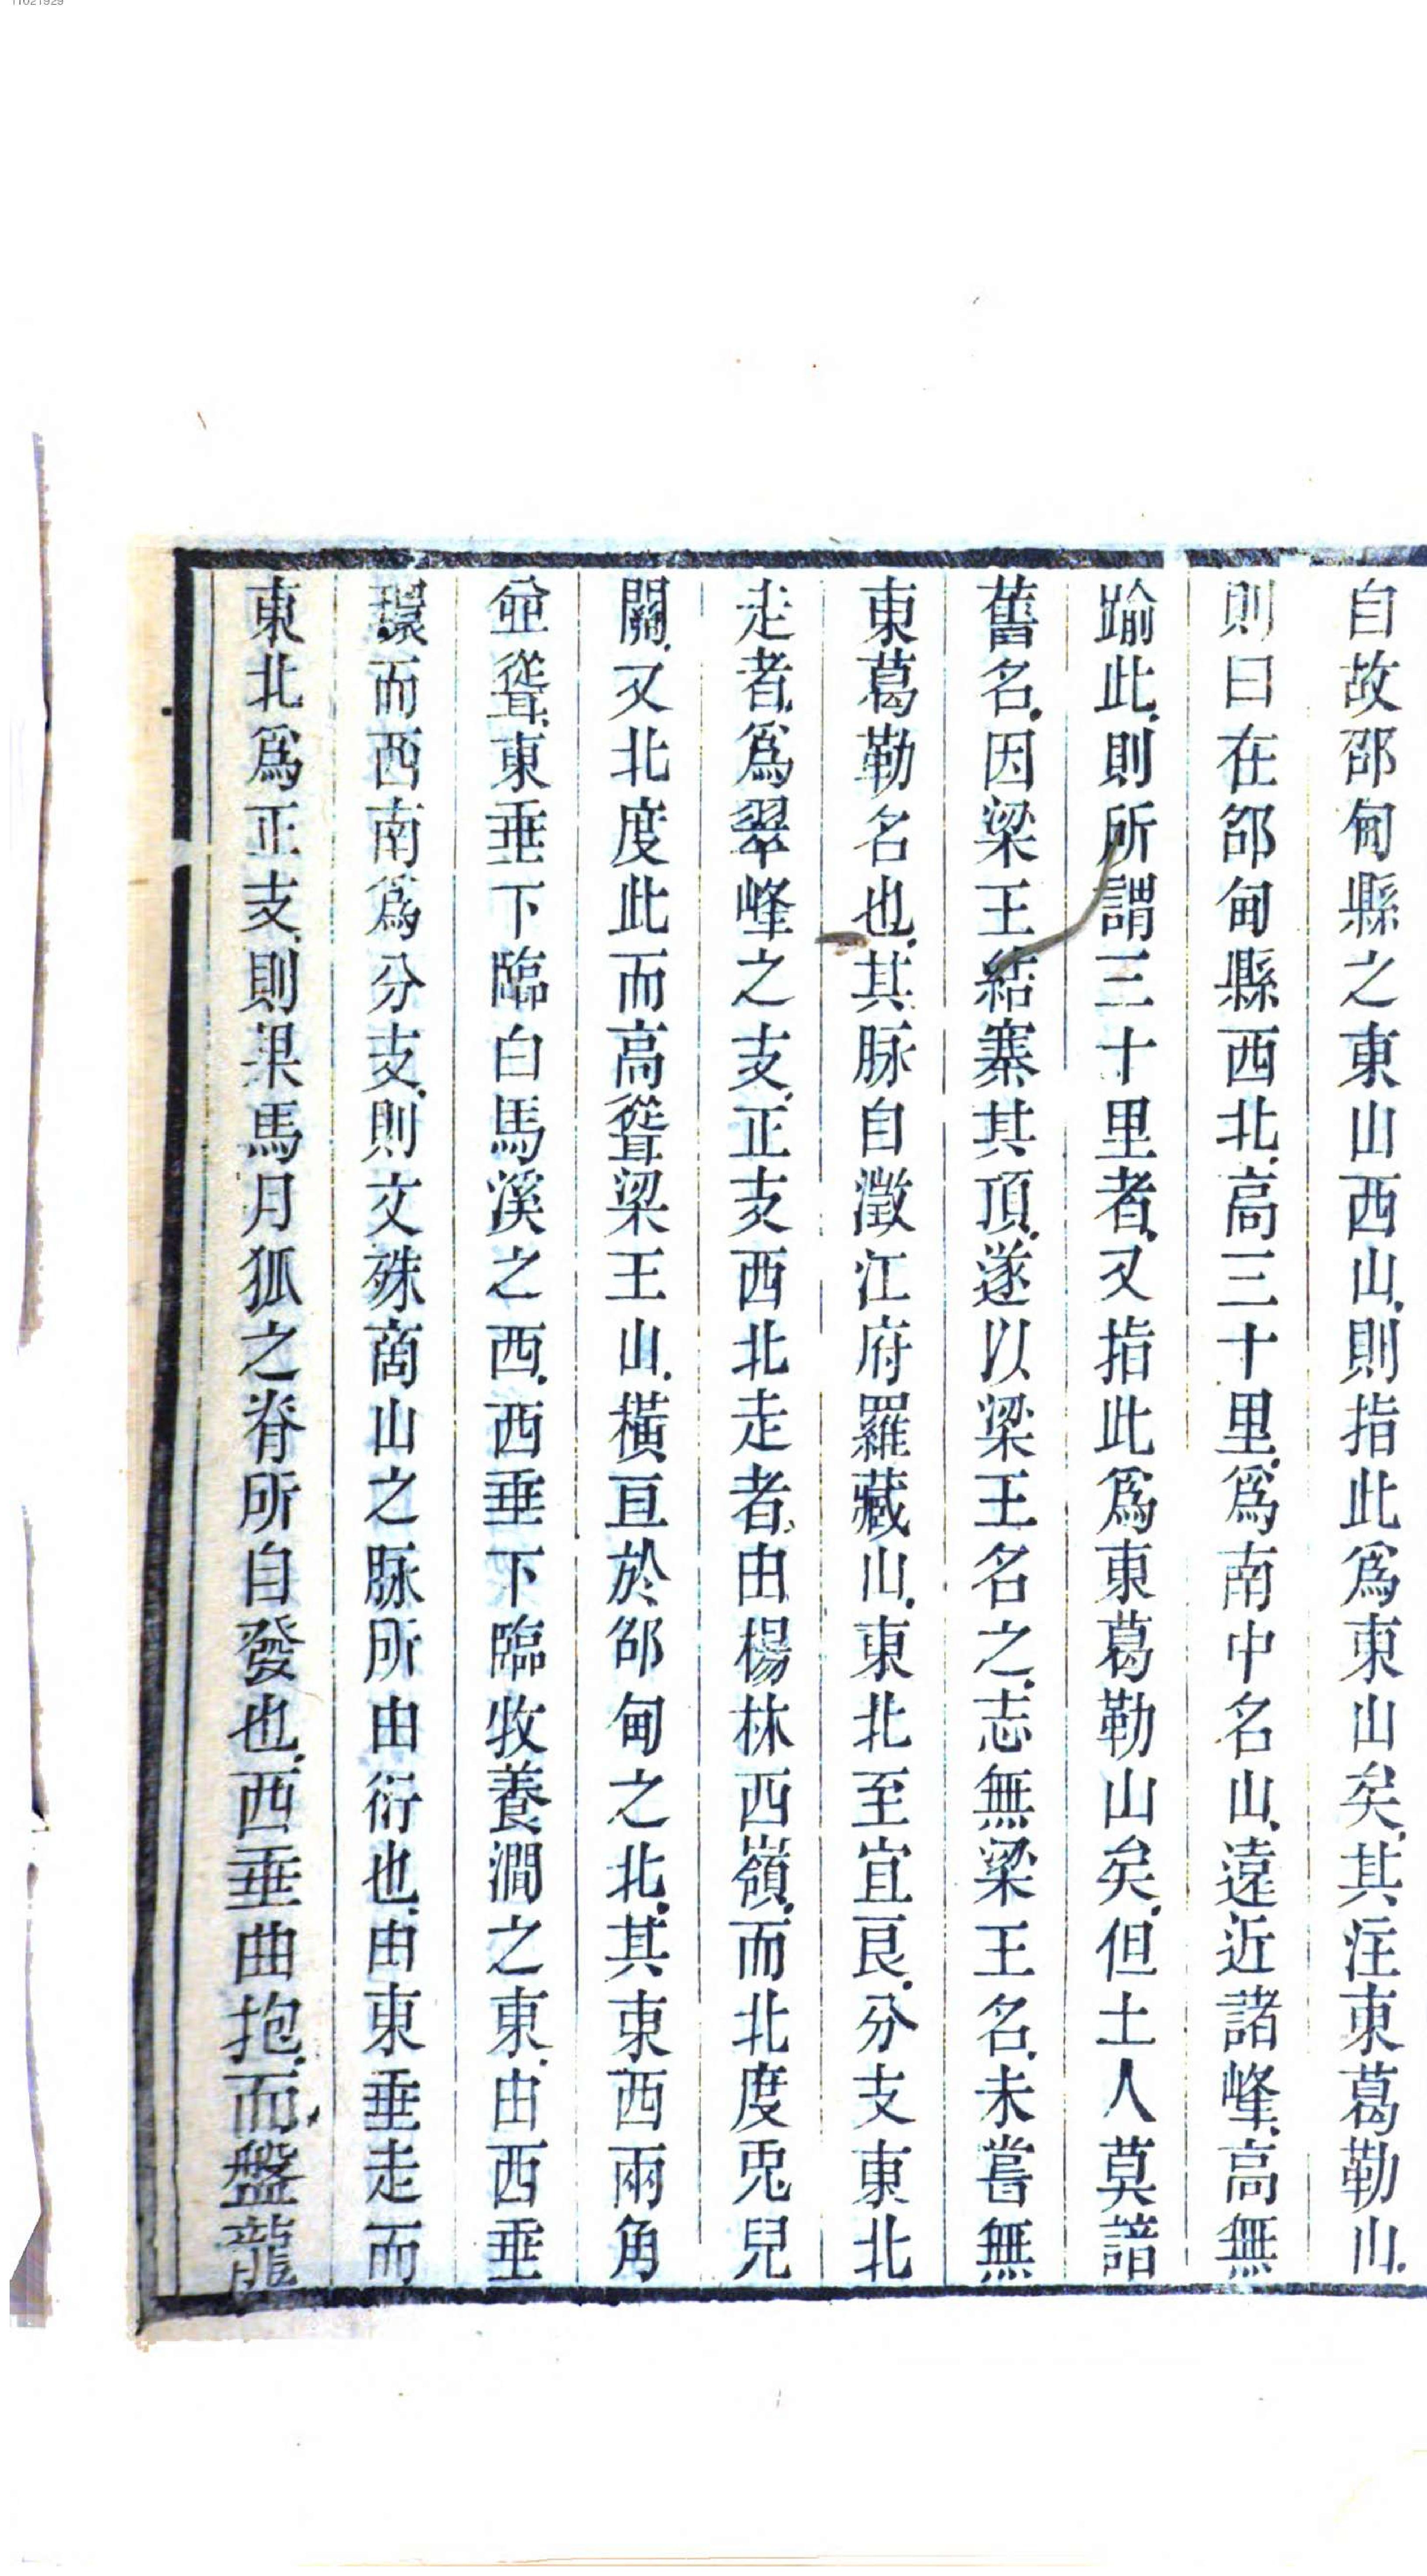 11621929
自故邵甸縣之東山西山則指此爲東山矣其注東葛勒山
則曰在邵甸縣西北高三十里爲南中名山遠近諸峰高無
踰此則所謂三十里者又指此爲東葛勒山矣但土人莫諳
舊名因梁王結寨其頂遂以梁王名之志無梁王名未嘗無
東葛勒名也其脉自澂江府羅藏山東北至宜良分支東北
走者爲翠峰之支正支西北走者由楊林西嶺而北度兎兒
關又北度此而高聳梁王山橫亘於邵甸之北其東西兩角
並聳東垂下臨白馬溪之西西垂下臨牧養澗之東由西垂
環而西南爲分支則文殊商山之脉所由衍也由東垂走而
東北爲正支則梁馬月狐之脊所自發也西垂曲抱而盤龍